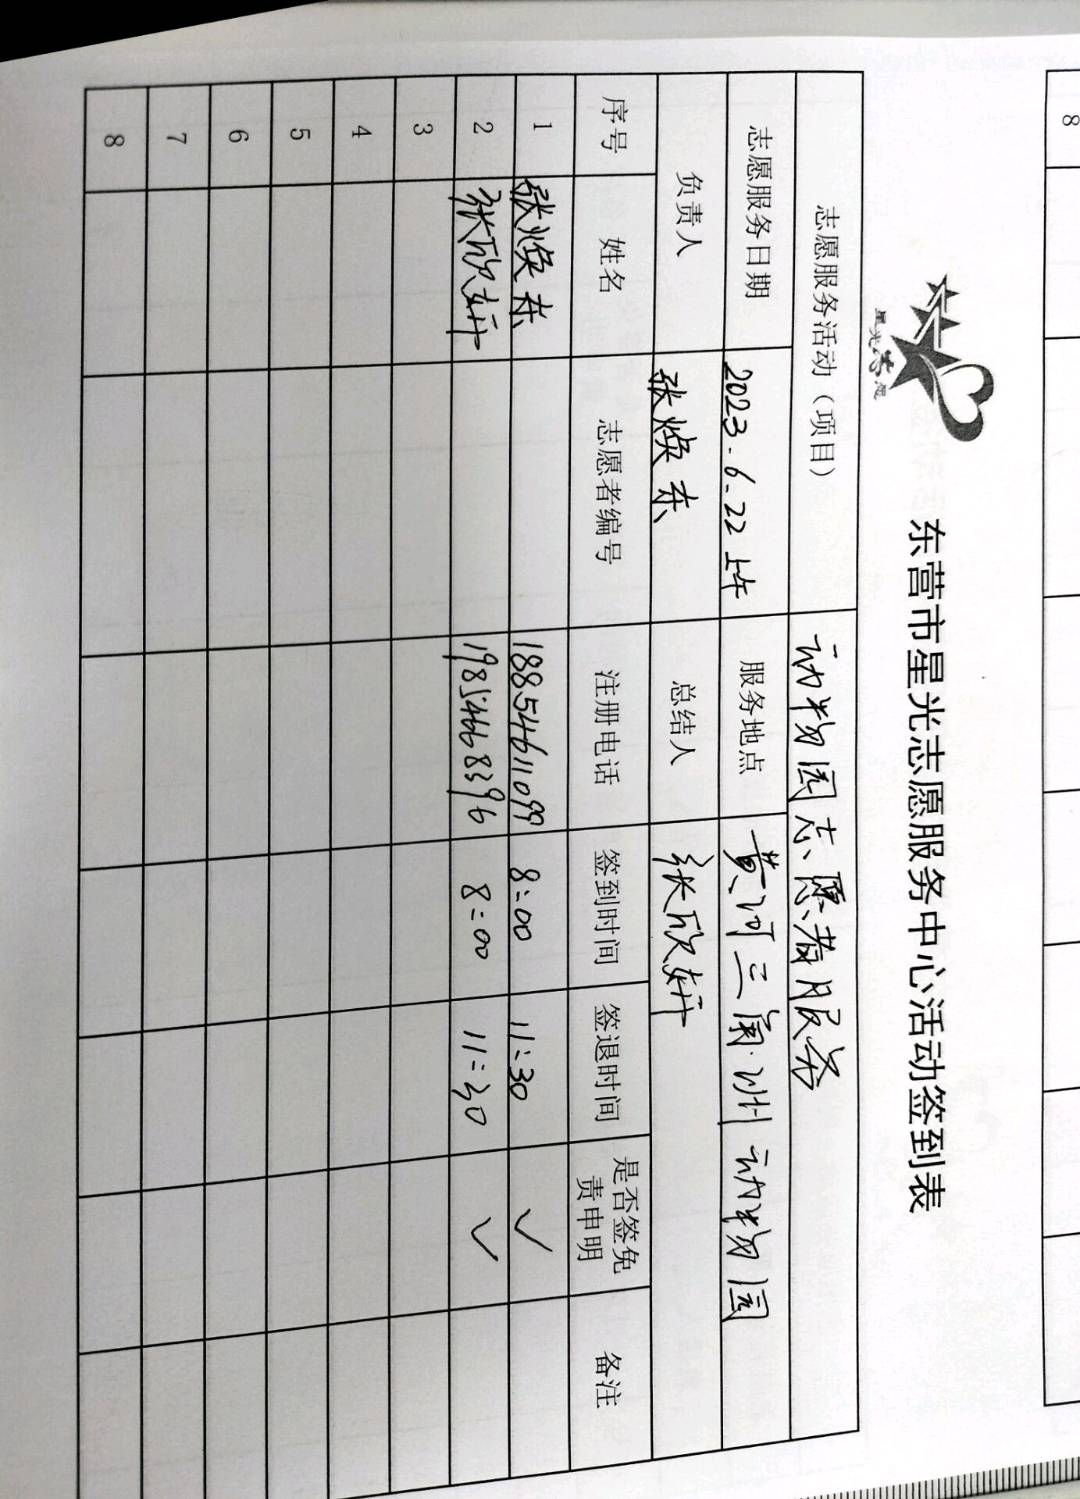 8
星光志愿
东营市星光志愿服务中心活动签到表
志愿服务活动（项目） 动物园志愿者服务
志愿服务日期 2023.6.22上午 服务地点 黄河三角洲动物园
负责人 张焕东 总结人 张欣妍
序号 姓名 志愿者编号 注册电话 签到时间 签退时间 是否签免责申明 备注
1 张焕东 18854611099 8:00 11:30 ✓
2 张欣妍 19854668396 8:00 11:30 ✓
3
4
5
6
7
8